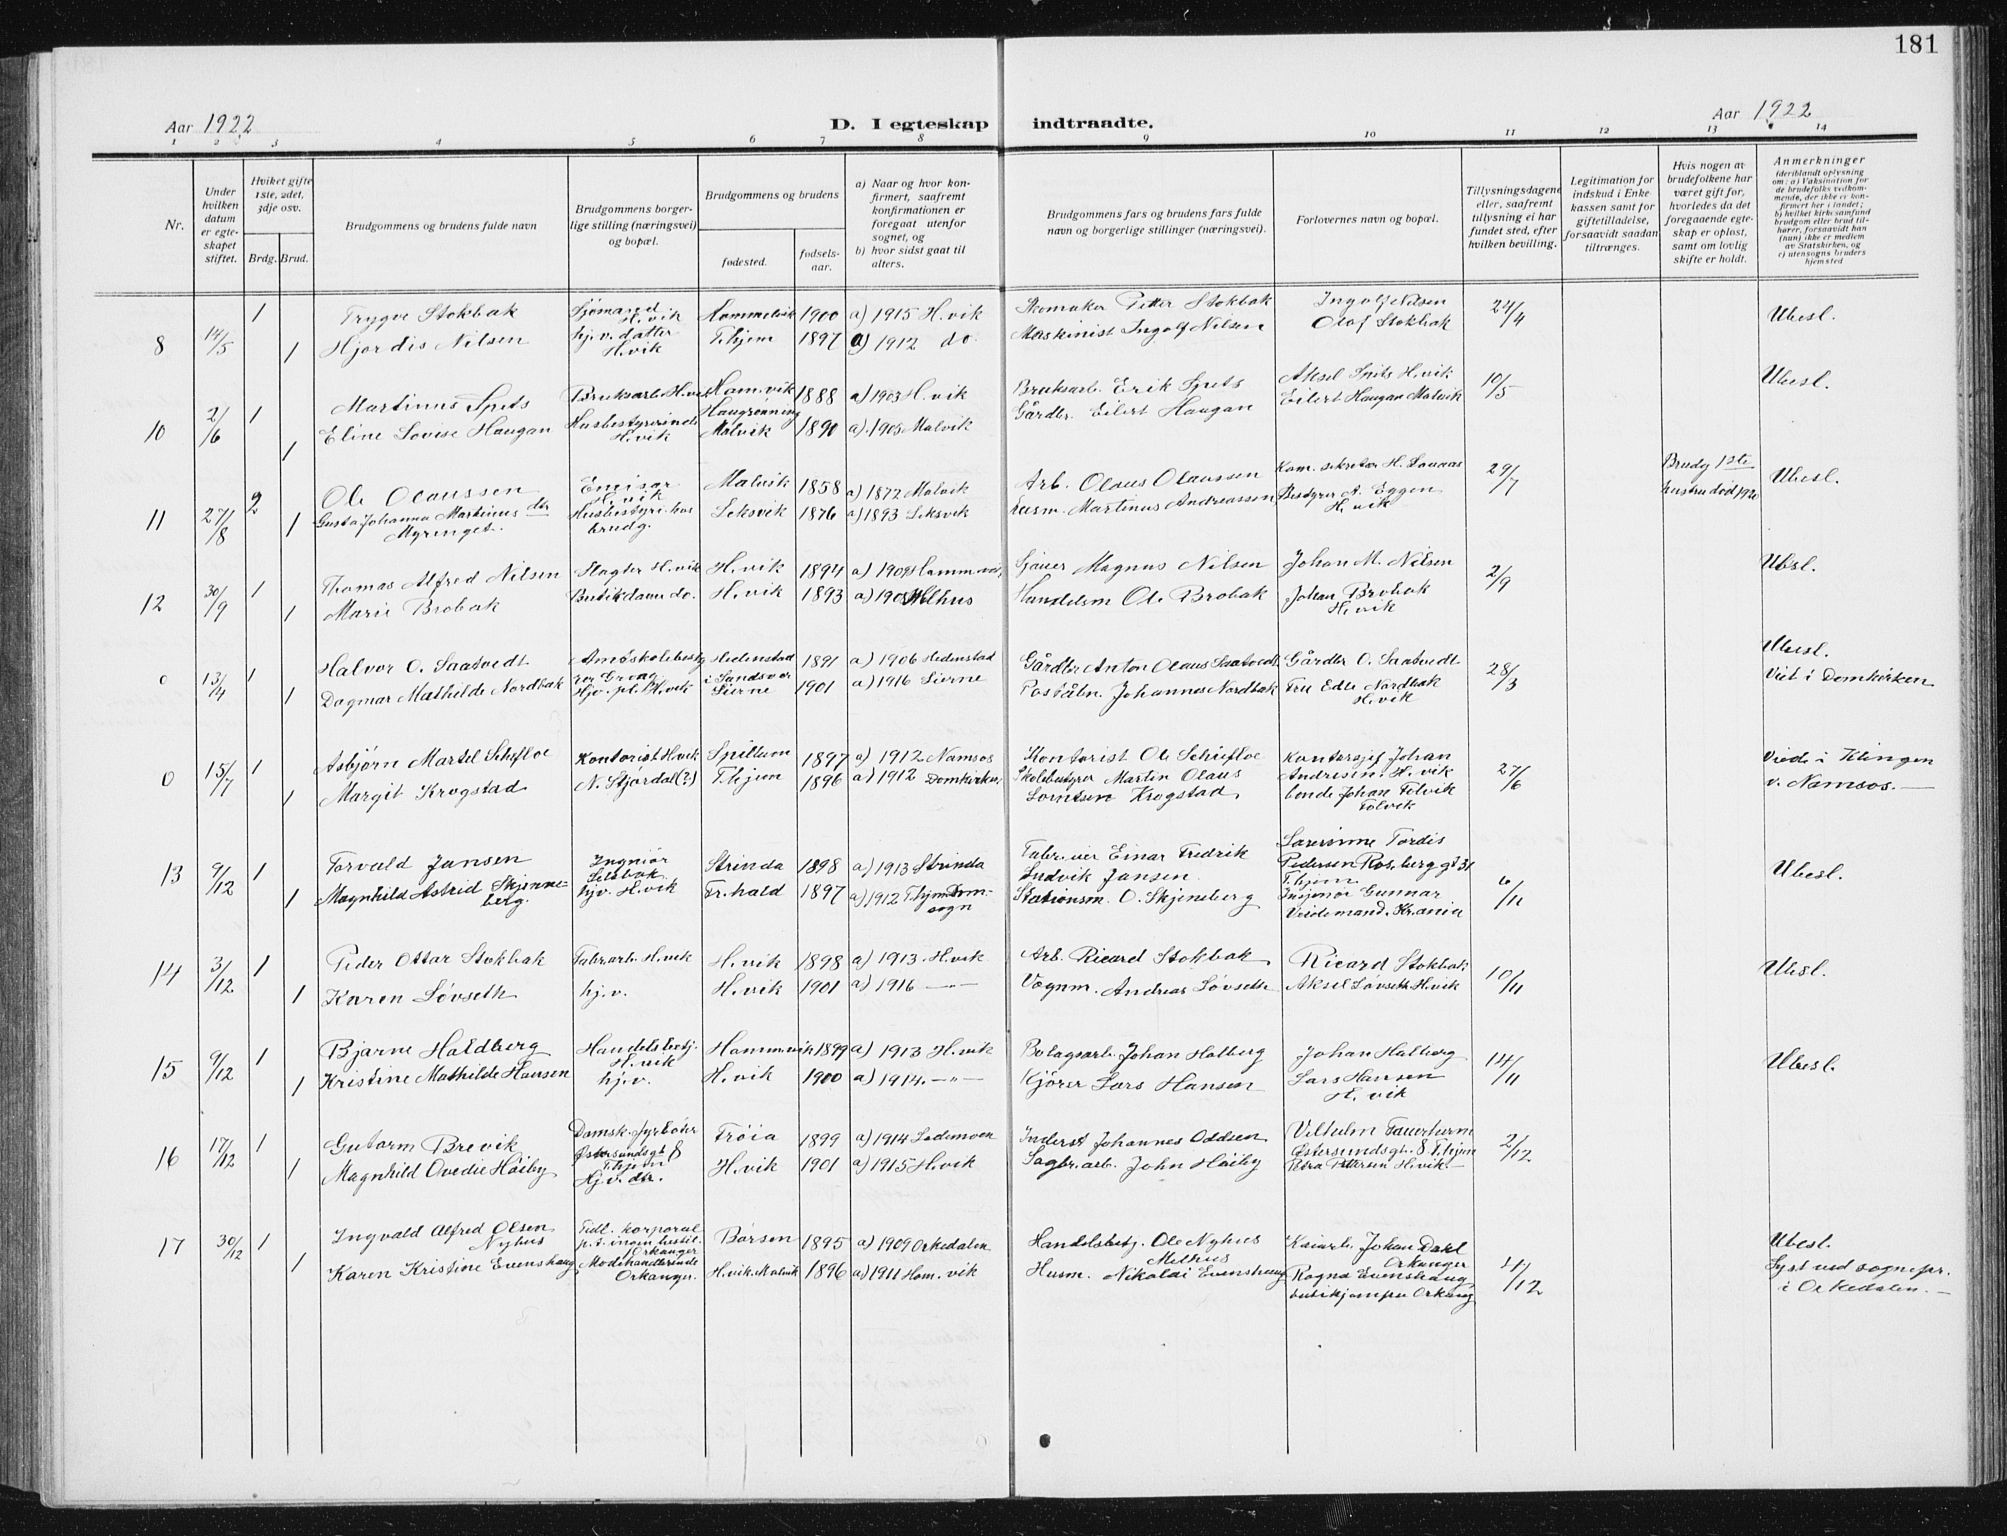 181
Aar 1922
D. I egteskap indtraadte.
Aar 1922
1 2 3 4 5 6 7 8 9 10 11 12 13 14
Nr.
Under hvilken datum er egteskapet stiftet.
Hvilket gifte 1ste, 2det, 3dje osv.
Brdg. Brud.
Brudgommens og brudens fulde navn
Brudgommens borgerlige stilling (næringsvei) og bopæl.
Brudgommens og brudens
fødested.
fødselsaar.
a) Naar og hvor konfirmert, saafremt konfirmationen er foregaat utenfor sognet, og
b) hvor sidst gaat til alters.
Brudgommens fars og brudens fars fulde navn og borgerlige stillinger (næringsvei).
Forlovernes navn og bopæl.
Tillysningsdagene eller, saafremt tillysning ei har fundet sted, efter hvilken bevilling.
Legitimation for indskud i Enkekassen samt for giftetilladelse, forsaavidt saadan tiltrænges.
Hvis nogen av brudefolkene har været gift før, hvorledes da det foregaaende egteskap er opløst, samt om lovlig skifte er holdt.
Anmerkninger
(deriblandt oplysning om: a) Vaksination for de brudefolks vedkommende, der ikke er konfirmert her i landet; b) hvilket kirkesamfund brudgom eller brud tilhører, forsaavidt han (hun) ikke er medlem av Statskirken, og c) utensogns bruders hjemsted
8 14/5 1 Trygve Stokbak Sjømand H.vik Hommelvik 1900 a) 1915 H.vik Skomaker Petter Stokbak Ingolf Nilsen 24/4 Ubesl.
1 Hjørdis Nilsen hj.v. datter H.vik T.hjem 1897 a) 1912 do. Maskinist Ingolf Nilsen Olaf Stokbak
10 2/6 1 Martinus Spets Bruksarb. H.vik Hom.vik 1888 a) 1903 H.vik Bruksarb. Erik Spets Aksel Spets H.vik 10/5 Ubesl.
1 Eline Lovise Haugan Husbestyrerinde H.vik Haugrønning Malvik 1890 a) 1905 Malvik Gårdbr. Eilert Haugan Eilert Haugan Malvik
11 27/8 2 Ole Olaussen H.vik Malvik 1858 a) 1872 Malvik Arb. Olaus Olaussen Kom. sekretær H. 29/7 Brudg 1ste hustru død 1920 Ubesl.
1 Gusta Johanna Martinus dtr Myringet. Husbestyr. hos brudg. Leksvik 1876 a) 1893 Leksvik Husm. Martinus Andreassen Bestyrer A. Eggen H.vik
12 30/9 1 Thomas Alfred Nilsen Slagter H.vik H.vik 1894 a) 1909 Magnus Nilsen Johan M. Nilsen 2/9 Ubesl.
1 Marie Brobak Butikdame do. H.vik 1893 Handelsm Ole Brobak Johan Brobak H.vik
0 13/4 1 Halvor O. Saatvedt Hedenstad i Sandsver 1891 a) 1906 Hedenstad Gårdbr Anton Olaus Saatvedt Gårdbr O. Saatvedt 28/3 Ubesl.
1 Dagmar Mathilde Nordbak H.vik Lierne 1901 a) 1916 Lierne Poståbn. Johannes Nordbak Fru Edle Nordbak H.vik Viet i Domkirken
0 15/7 1 Asbjørn Martel Schefloe Kontorist H.vik Spillum 1897 a) 1912 Namsos Kontorist Ole Schefloe Kontorsjef Johan Andresen. H.vik 27/6 Viede i Klingen v. Namsos.
1 Margit Krogstad N. Stjørdal (?) T.hjem 1896 a) 1912 Domkirken Skolebestyrer Martin Olaus Lorntsen Krogstad bonde Johan Folvik Folvik
13 9/12 1 Torvald Jansen Ingeniør Strinda 1898 a) 1913 Strinda Einar Fredrik Ludvik Jansen Tordis Pedersen Ros.berg gt 31 T.hjem 6/11 Ubesl.
1 Magnhild Astrid Skjenneberg. hjv. H.vik Fr.hald 1897 a) 1912 T.hjem Domsogn Stationsm. O. Skjeneberg Injeniør Gunnar Kr.ania
14 3/12 1 Peder Ottar Stokbak Fabr.arb. H.vik H.vik 1898 a) 1913. H.vik Arb. Ricard Stokbak Ricard Stokbak 10/11 Ubesl.
1 Karen Løvseth hj.v. H.vik 1901 a) 1916 —"— Vognm. Andreas Løvseth Aksel Løvseth H.vik
15 9/12 1 Bjarne Haldberg Handelsbetj. H.vik Homm.vik 1899 a) 1913 H.vik Bolagsarb. Johan Halberg Johan Halberg 14/11 Ubesl.
1 Kristine Mathilde Hansen hj.v. H.vik 1900 a) 1914. —"— Kjører Lars Hansen Lars Hansen H.vik
16 17/12 1 Gutorm Brevik Østersundsgt 8 T.hjem Frøia 1899 a) 1914 Lademoen Johannes Oddsen Vilhelm Østersundsgt. 8 T.hjem 2/12
1 Magnhild Ovedie Høiby Hj.v. dtr. H.vik 1901 a) 1915 H.vik Sagbr.arb. John Høiby Petra Pettersen H.vik.
17 30/12 1 Ingvald Alfred Olsen Nyhus Tidl. korporal p.t. ingen bestil. Orkanger Børsen 1895 a) 1909 Orkedalen Handelsbetj. Ole Nyhus Melhus Johan Dahl Orkanger 4/12 Ubesl.
1 Karen Kristine Evenshaug Modehandlerinde Orkanger. H.vik. Malvik 1896 a) 1911 Hom.vik Husm. Nikolai Evenshaug Ragna Evenshaug Lyst ved sognepr. i Orkedalen.